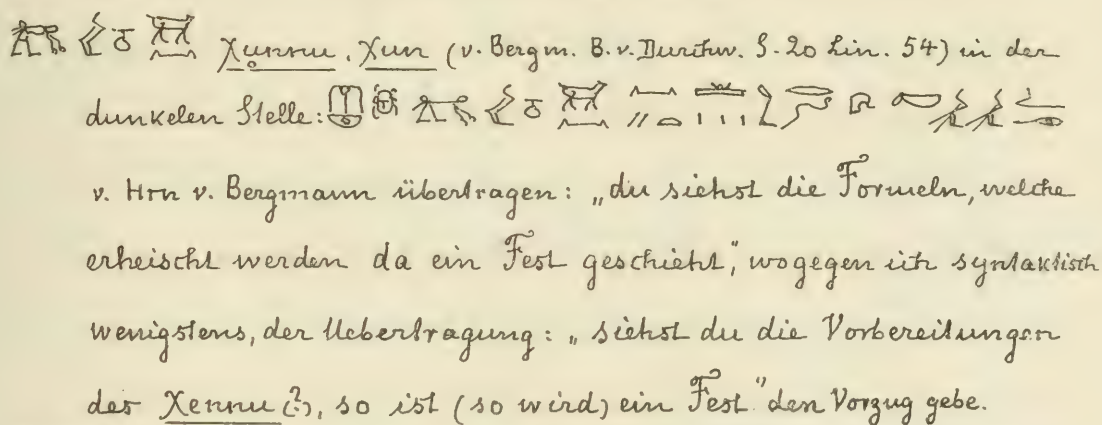 Xu̥nnu, Xun (v. Bergm. B. v. Durchw. S. 20 Lin. 54) in der
dunkelen Stelle:
v. Hrn v. Bergmann übertragen: „du siehst die Formeln, welche
erheischt werden da ein Fest geschieht“, wogegen ich syntaktisch
wenigstens, der Uebertragung: „siehst du die Vorbereitungen
des Xennu (?), so ist (so wird) ein Fest“ den Vorzug gebe.